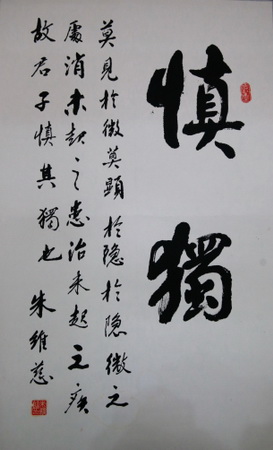 慎獨
莫見於微莫顯於隐於隐微之
處消未起之患治未起之疾
故君子慎其獨也 朱維慈